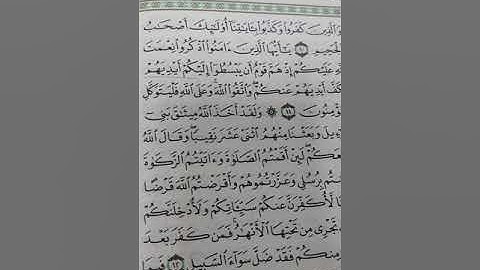 وَٱلَّذِينَ كَفَرُوا۟ وَكَذَّبُوا۟ بِـَٔايَـٰتِنَآ أُو۟لَـٰٓئِكَ أَصْحَـٰبُ
ٱلْجَحِيمِ ١٠ يَـٰٓأَيُّهَا ٱلَّذِينَ ءَامَنُوا۟ ٱذْكُرُوا۟ نِعْمَتَ
عَلَيْكُمْ إِذْ هَمَّ قَوْمٌ أَن يَبْسُطُوٓا۟ إِلَيْكُمْ أَيْدِيَهُمْ
كَفَّ أَيْدِيَهُمْ عَنكُمْ وَٱتَّقُوا۟ ٱللَّهَ وَعَلَى ٱللَّهِ فَلْيَتَوَكَّلِ
ؤْمِنُونَ ١١ ۞ وَلَقَدْ أَخَذَ ٱللَّهُ مِيثَـٰقَ بَنِىٓ
وَبَعَثْنَا مِنْهُمُ ٱثْنَىْ عَشَرَ نَقِيبًا وَقَالَ ٱللَّهُ
عَكُمْ لَئِنْ أَقَمْتُمُ ٱلصَّلَوٰةَ وَءَاتَيْتُمُ ٱلزَّكَوٰةَ
بِرُسُلِى وَعَزَّرْتُمُوهُمْ وَأَقْرَضْتُمُ ٱللَّهَ قَرْضًا
لَّأُكَفِّرَنَّ عَنكُمْ سَيِّـَٔاتِكُمْ وَلَأُدْخِلَنَّكُمْ
تَجْرِى مِن تَحْتِهَا ٱلْأَنْهَـٰرُ فَمَن كَفَرَ بَعْدَ
مِنكُمْ فَقَدْ ضَلَّ سَوَآءَ ٱلسَّبِيلِ ١٢ فَبِمَا